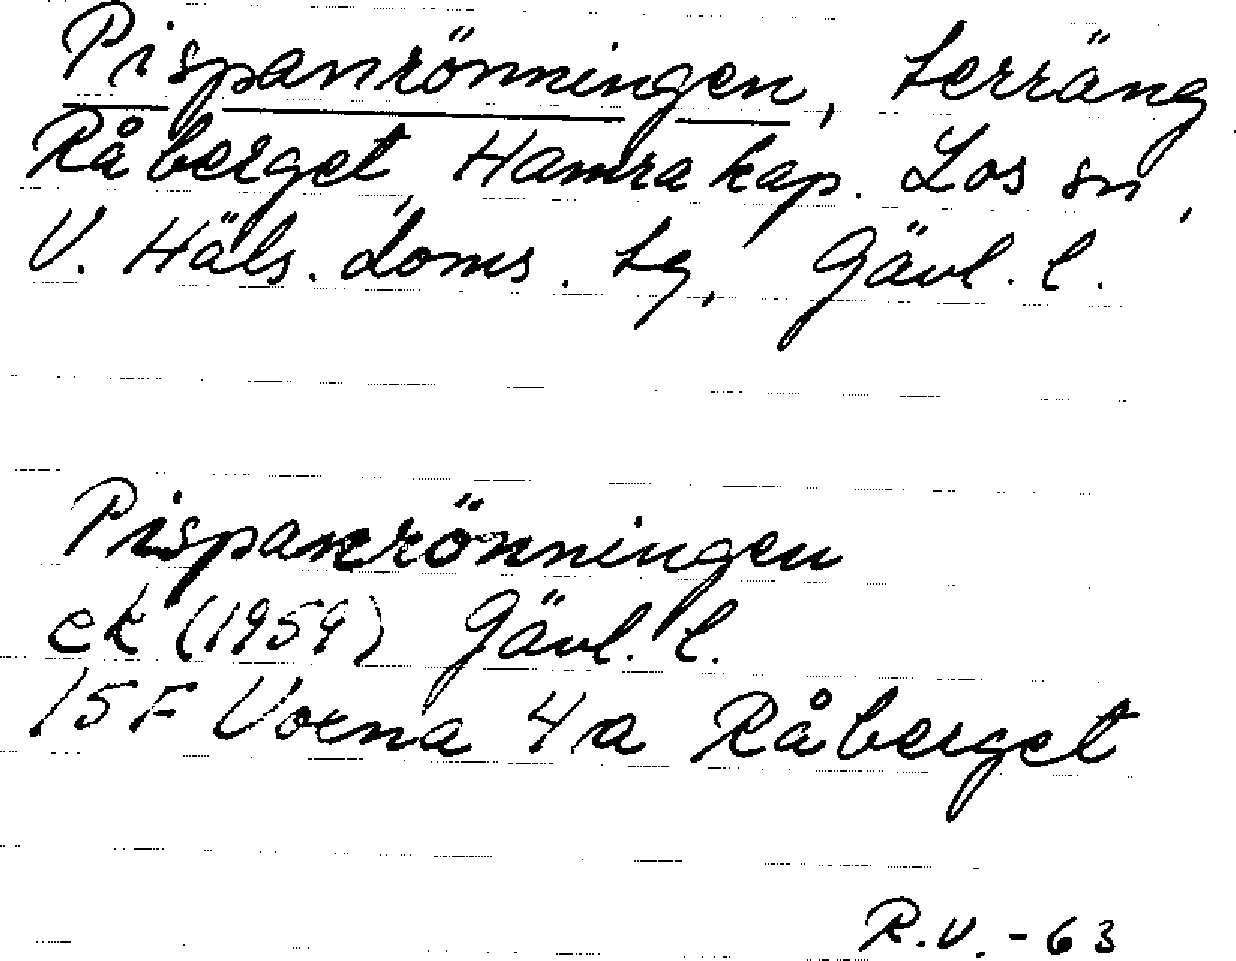 Pispanrönningen, terräng
Råberget, Hamra kap. Los sn,
V. Häls. doms. tg, Gävl. l.
Pispanrönningen
ek (1959) Gävl. l.
15F Voxna 4a Råberget
R.V.-63